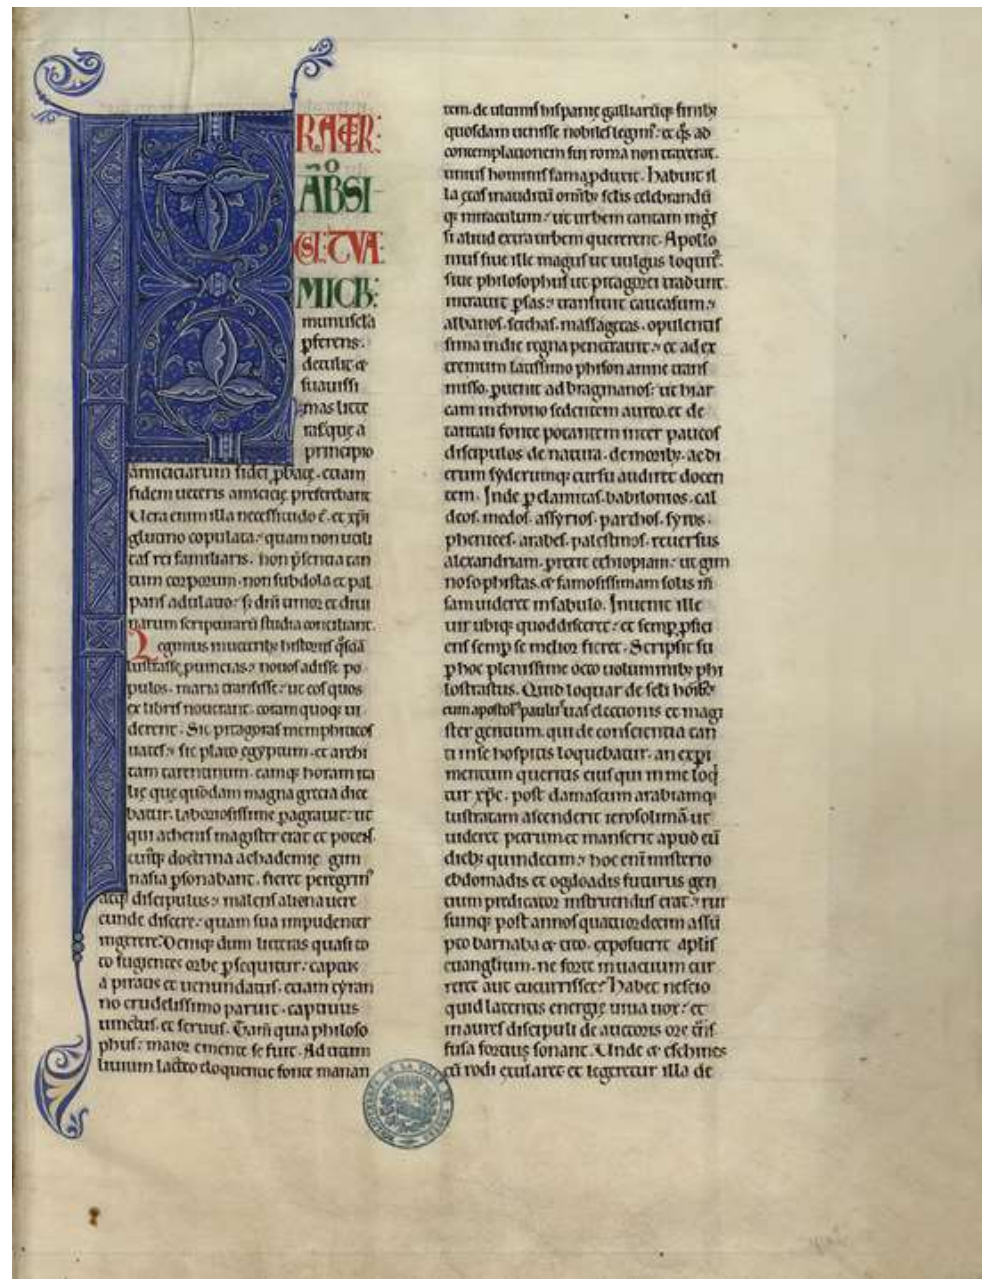 FRATER:
ÃBSI
SI: TVA
MICh:
munuscla
pferens:
detulit &
suauissi
mas litte
rasque a
principio
amiciciarum fidei pbatę. etiam
fidem ueteris amicicię preferebant
Vera enim illa necessitudo ē. et xpi
glutino copulata: quam non utili
tas rei familiaris. non psentia tan
tum corporum. non subdola et pal
pans adulatio: s; dni timor et diui
narum scripturarū studia conciliant.
Legimus in ueteribȝ historiis qsdā
lustrasse puincias: nouos adisse po
pulos. maria transisse: ut eos quos
ex libris nouerant. coram quoqȝ ui
derent. Sic pitagoras memphiticos
uates: sic plato egyptum. et archi
tam tarentinum. eamqȝ horam ita
lię que quōdam magna grecia dice
batur. laboriosissime pagrauit: ut
qui athenis magister erat et potens.
cuiqȝ doctrina achademię gim
nasia psonabant. fieret peregrin'
atqȝ discipulus: malens aliena uere
cunde discere: quam sua impudenter
ingerere. Deniqȝ dum litteras quasi to
to fugientes orbe psequitur: captus
a piratis et uenundatus. etiam tyran
no crudelissimo paruit. captiuus
uinctus. et seruus. Tam̄ quia philoso
phus: maior emente se fuit. Ad titum
liuium lacteo eloquentie fonte manan
tem. de ultimis hispanię galliarūqȝ finibȝ
quosdam uenisse nobiles legim': et qs ad
contemplationem sui roma non traxerat.
unius hominis fama pduxit. habuit il
la ętas inauditū omibȝ sclis celebrandū
qȝ miraculum: ut urbem tantam ings
si aliud extra urbem quererent. Apollo
nius siue ille magus ut uulgus loquit':
siue philosophus ut pitagorei tradunt.
intrauit psas: transiuit caucasum:
albanos. scithas. massagetas. opulentis
sima indie regna penetrauit: et ad ex
tremum latissimo phison amne trans
misso. puenit ad bragmanos: ut hiar
cam in throno sedentem aureo. et de
tantali fonte potantem inter paucos
discipulos de natura. de moribȝ. ac di
erum syderumqȝ cursu audiret docen
tem. Inde p elamitas. babilonios. cal
deos. medos. assyrios. parthos. syros.
phenices. arabes. palestinos. reuersus
alexandriam. prexit ethiopiam: ut gim
nosophistas. & famosissimam solis m̄
sam uideret insabulo. Inuenit ille
uir ubiqȝ quod disceret: et semp pfici
ens semp se melior fieret. Scripsit su
p hoc plenissime octo uoluminibȝ phi
lostrastus. Quid loquar de scli hoibȝ:
cum apostol' paulu' uas electionis et magi
ster gentium. qui de conscientia tan
ti inse hospitis loquebatur. an expi
mentum queritis eius qui in me loq̄
tur xpc. post damascum arabiamqȝ
lustratam ascenderit ierosolimā ut
uideret petrum et manserit apud eū
diebȝ quindecim: hoc eni misterio
ebdomadis et ogdoadis futurus gen
tium predicator instruendus erat: rur
sumqȝ post annos quattuordecim assū
pto barnaba & tito. exposuerit aplis
euanglium. ne forte in uacuum cur
reret aut cucurrisset. Habet nescio
quid latentis energię uiua uox: et
in aures discipuli de auctoris ore trās
fusa fortius sonant. Unde & eschines
cū rodi exularet et legeretur illa de